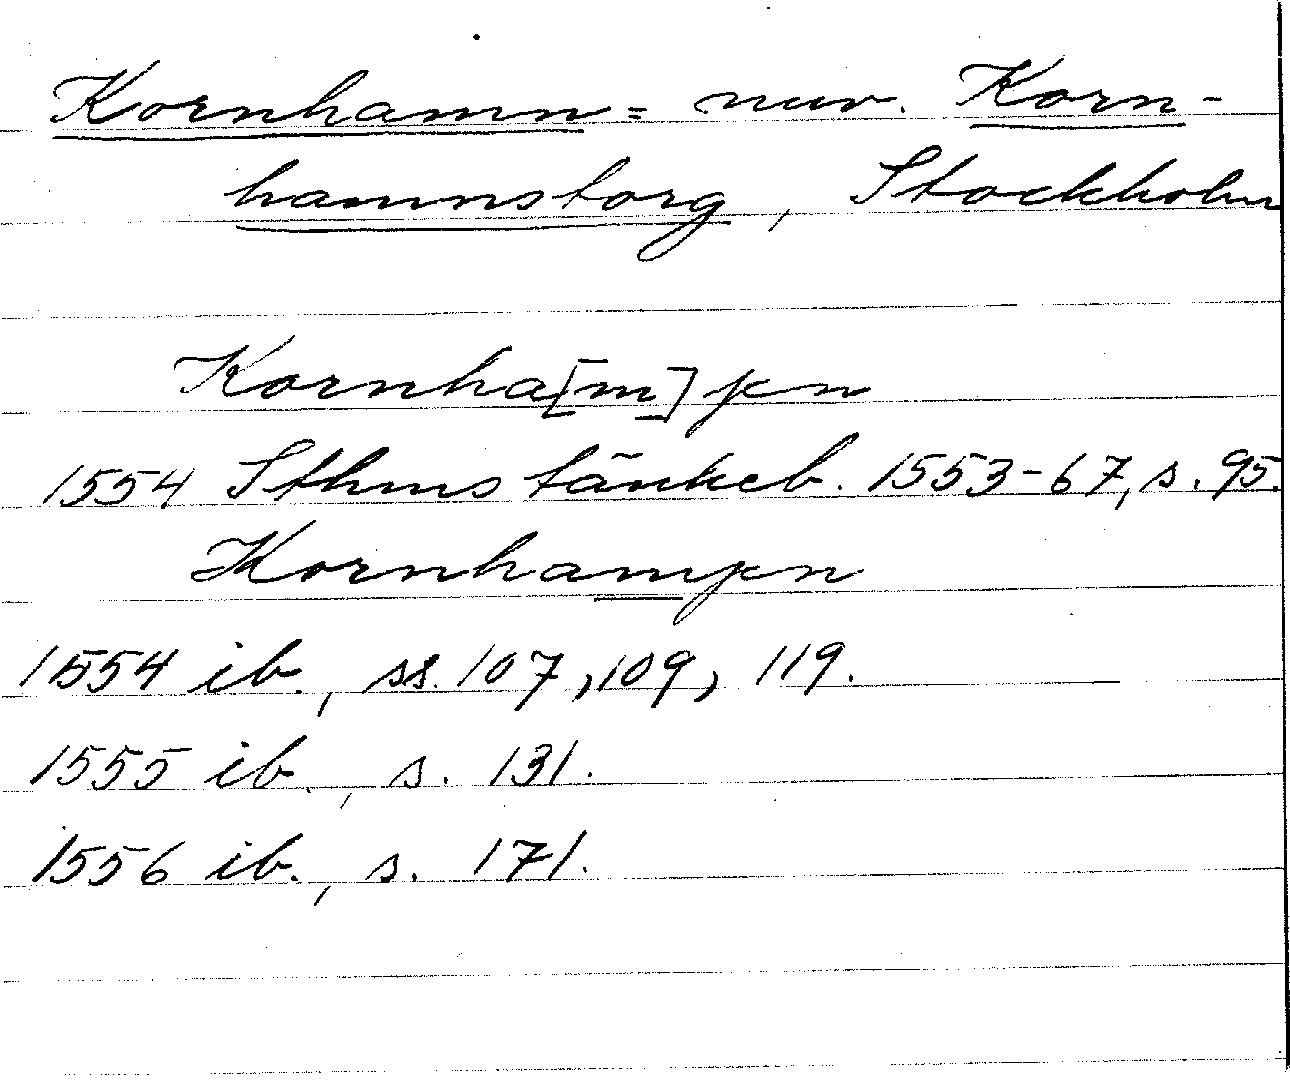 Kornhamn = nuv. Korn-
hamnstorg, Stockholm
Kornha[m]pn
1554 Sthms tänkeb. 1553-67, s. 95.
Kornhampn
1554 ib., ss. 107, 109, 119.
1555 ib., s. 131.
1556 ib., s. 171.